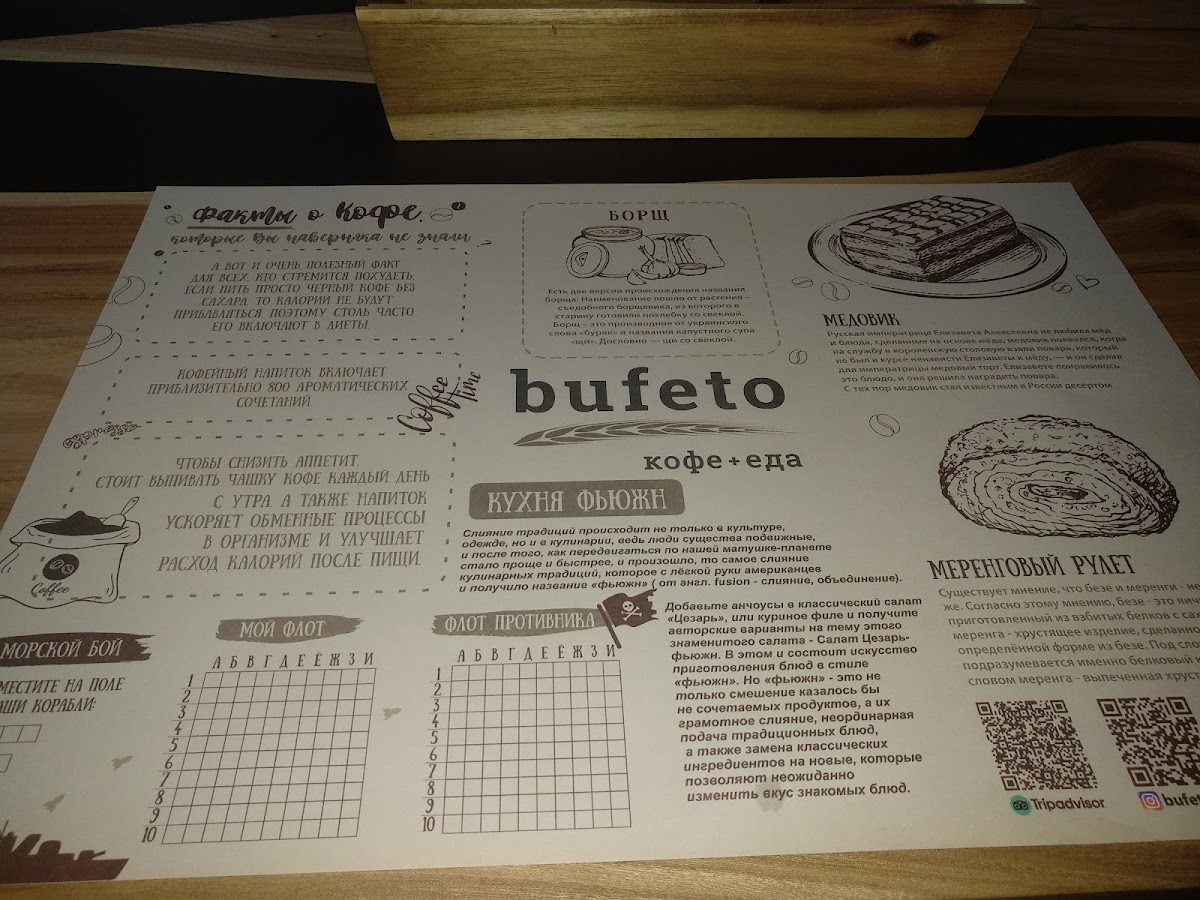 Факты о Кофе,
которые Вы наверняка не знали
А ВОТ И ОЧЕНЬ ПОЛЕЗНЫЙ ФАКТ
ДЛЯ ВСЕХ, КТО СТРЕМИТСЯ ПОХУДЕТЬ.
ЕСЛИ ПИТЬ ПРОСТО ЧЕРНЫЙ КОФЕ БЕЗ
САХАРА, ТО КАЛОРИИ НЕ БУДУТ
ПРИБАВЛЯТЬСЯ, ПОЭТОМУ СТОЛЬ ЧАСТО
ЕГО ВКЛЮЧАЮТ В ДИЕТЫ.
КОФЕЙНЫЙ НАПИТОК ВКЛЮЧАЕТ
ПРИБЛИЗИТЕЛЬНО 800 АРОМАТИЧЕСКИХ
СОЧЕТАНИЙ.
Coffee
Time
ЧТОБЫ СНИЗИТЬ АППЕТИТ,
СТОИТ ВЫПИВАТЬ ЧАШКУ КОФЕ КАЖДЫЙ ДЕНЬ
С УТРА, А ТАКЖЕ НАПИТОК
УСКОРЯЕТ ОБМЕННЫЕ ПРОЦЕССЫ
В ОРГАНИЗМЕ И УЛУЧШАЕТ
РАСХОД КАЛОРИЙ ПОСЛЕ ПИЩИ.
Coffee
БОРЩ
Есть две версии происхождения названия
борща: Наименование пошло от растения –
съедобного борщевика, из которого в
старину готовили похлебку со свеклой.
Борщ – это производное от украинского
слова «буряк» и названия капустного супа
«щи». Дословно — щи со свеклой.
bufeto
кофе+еда
КУХНЯ ФЬЮЖН
Слияние традиций происходит не только в культуре,
одежде, но и в кулинарии, ведь люди существа подвижные,
и после того, как передвигаться по нашей матушке-планете
стало проще и быстрее, и произошло, то самое слияние
кулинарных традиций, которое с лёгкой руки американцев
и получило название «фьюжн» ( от англ. fusion - слияние, объединение).
Добавьте анчоусы в классический салат
«Цезарь», или куриное филе и получите
авторские варианты на тему этого
знаменитого салата - Салат Цезарь-
фьюжн. В этом и состоит искусство
приготовления блюд в стиле
«фьюжн». Но «фьюжн» - это не
только смешение казалось бы
не сочетаемых продуктов, а их
грамотное слияние, неординарная
подача традиционных блюд,
а также замена классических
ингредиентов на новые, которые
позволяют неожиданно
изменить вкус знакомых блюд.
МЕДОВИК
Русская императрица Елизавета Алексеевна не любила мёд
и блюда, сделанные на основе мёда; медовик появился, когда
на службу в королевскую столовую взяли повара, который
не был в курсе ненависти Елизаветы к мёду, — и он сделал
для императрицы медовый торт. Елизавете понравилось
это блюдо, и она решила наградить повара.
С тех пор медовик стал известным в России десертом
МЕРЕНГОВЫЙ РУЛЕТ
Существует мнение, что безе и меренги - не
же. Согласно этому мнению, безе - это
приготовленный из взбитых белков с
меренга - хрустящее изделие,
определённой форме из безе. Под
подразумевается именно белковый
словом меренга - выпеченная
Tripadvisor
МОРСКОЙ БОЙ
НА ПОЛЕ
КОРАБЛИ:
МОЙ ФЛОТ
А Б В Г Д Е Ё Ж З И
1
2
3
4
5
6
7
8
9
10
ФЛОТ ПРОТИВНИКА
А Б В Г Д Е Ё Ж З И
1
2
3
4
5
6
7
8
9
10